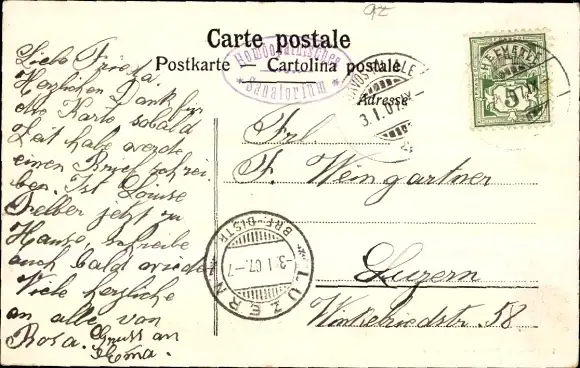 92
Carte postale
Postkarte — Cartolina postale
Homöopathisches
Sanatorium
Adresse
3.I.07
5
Liebe Frieda.
Herzlichen Dank für
die Karte sobald
Zeit habe werde
einen Brief schrei-
ben. Ist Louise
selber jetzt zu
Hause, schreibe
auch bald wieder
Viele herzliche
an alle von
Rosa. Gruss an
Frl.
F. Weingartner
Luzern
Winkelriedstr. 58
LUZERN
BRF-DISTR.
-3.I.07.-7